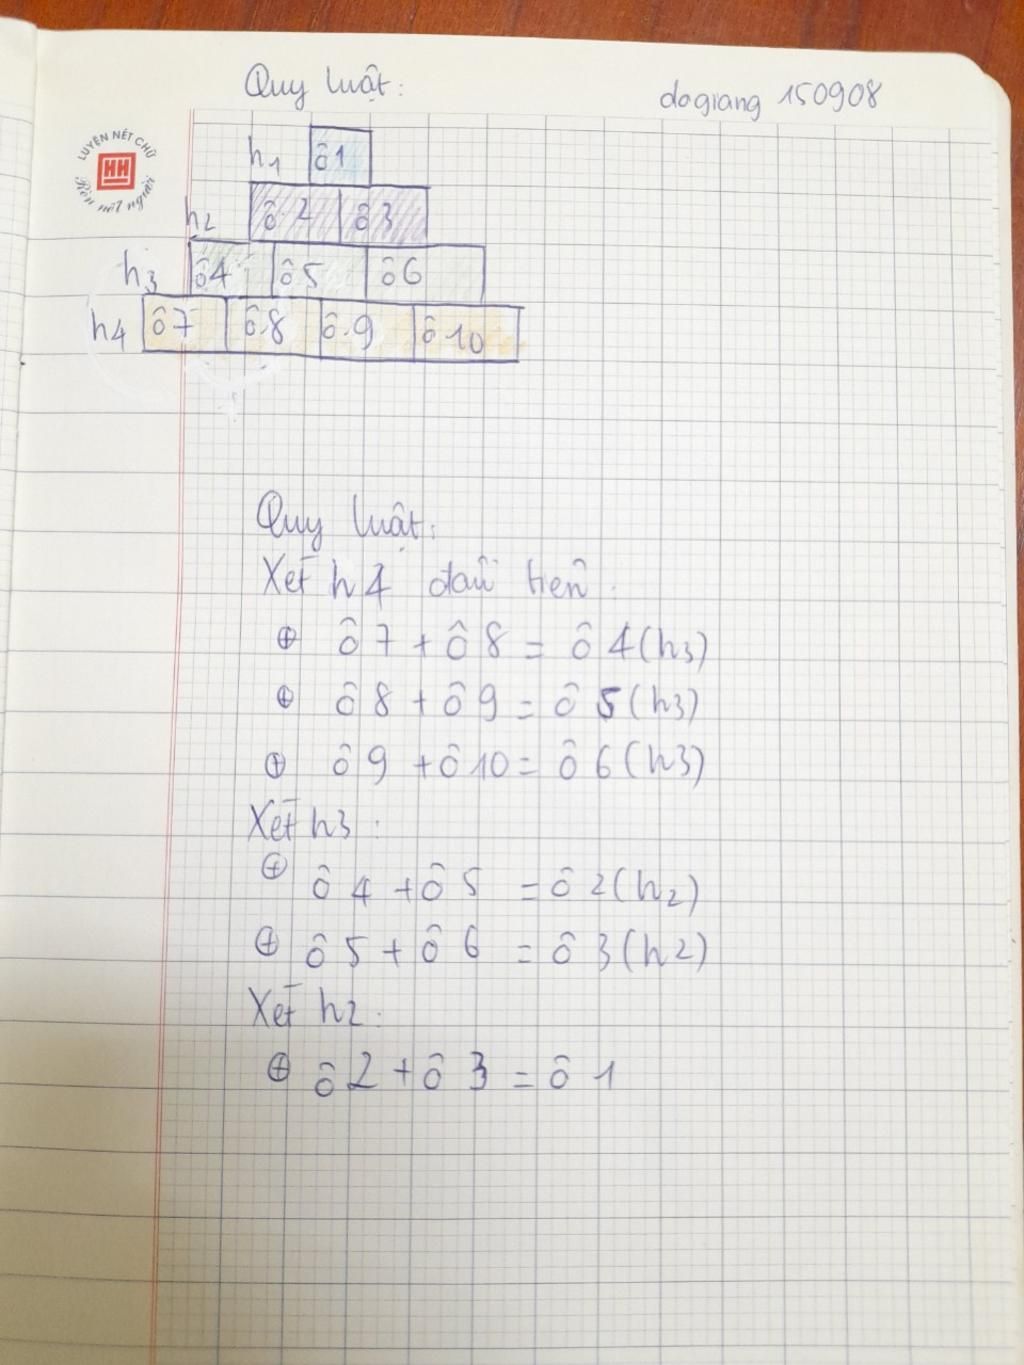 Quy luật:
dogiang 150908
LUYỆN NÉT CHỮ
HH
Rèn nết người
h1 ô1
h2 ô 2 ô3
h3 ô4 ô5 ô6
h4 ô7 ô8 ô.9 ô 10
Quy luật:
Xét h4 đầu tiên.
⊕ ô 7 + ô 8 = ô 4 (h3)
⊕ ô 8 + ô 9 = ô 5 (h3)
⊕ ô 9 + ô 10 = ô 6 (h3)
Xét h3:
⊕ ô 4 + ô 5 = ô 2 (h2)
⊕ ô 5 + ô 6 = ô 3 (h2)
Xét h2:
⊕ ô 2 + ô 3 = ô 1